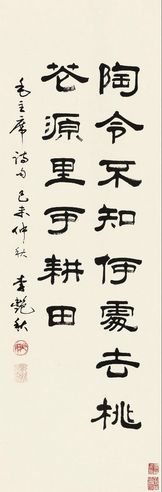 陶令不知何處去桃
花源里可耕田
毛主席詩句己未仲秋李艷秋